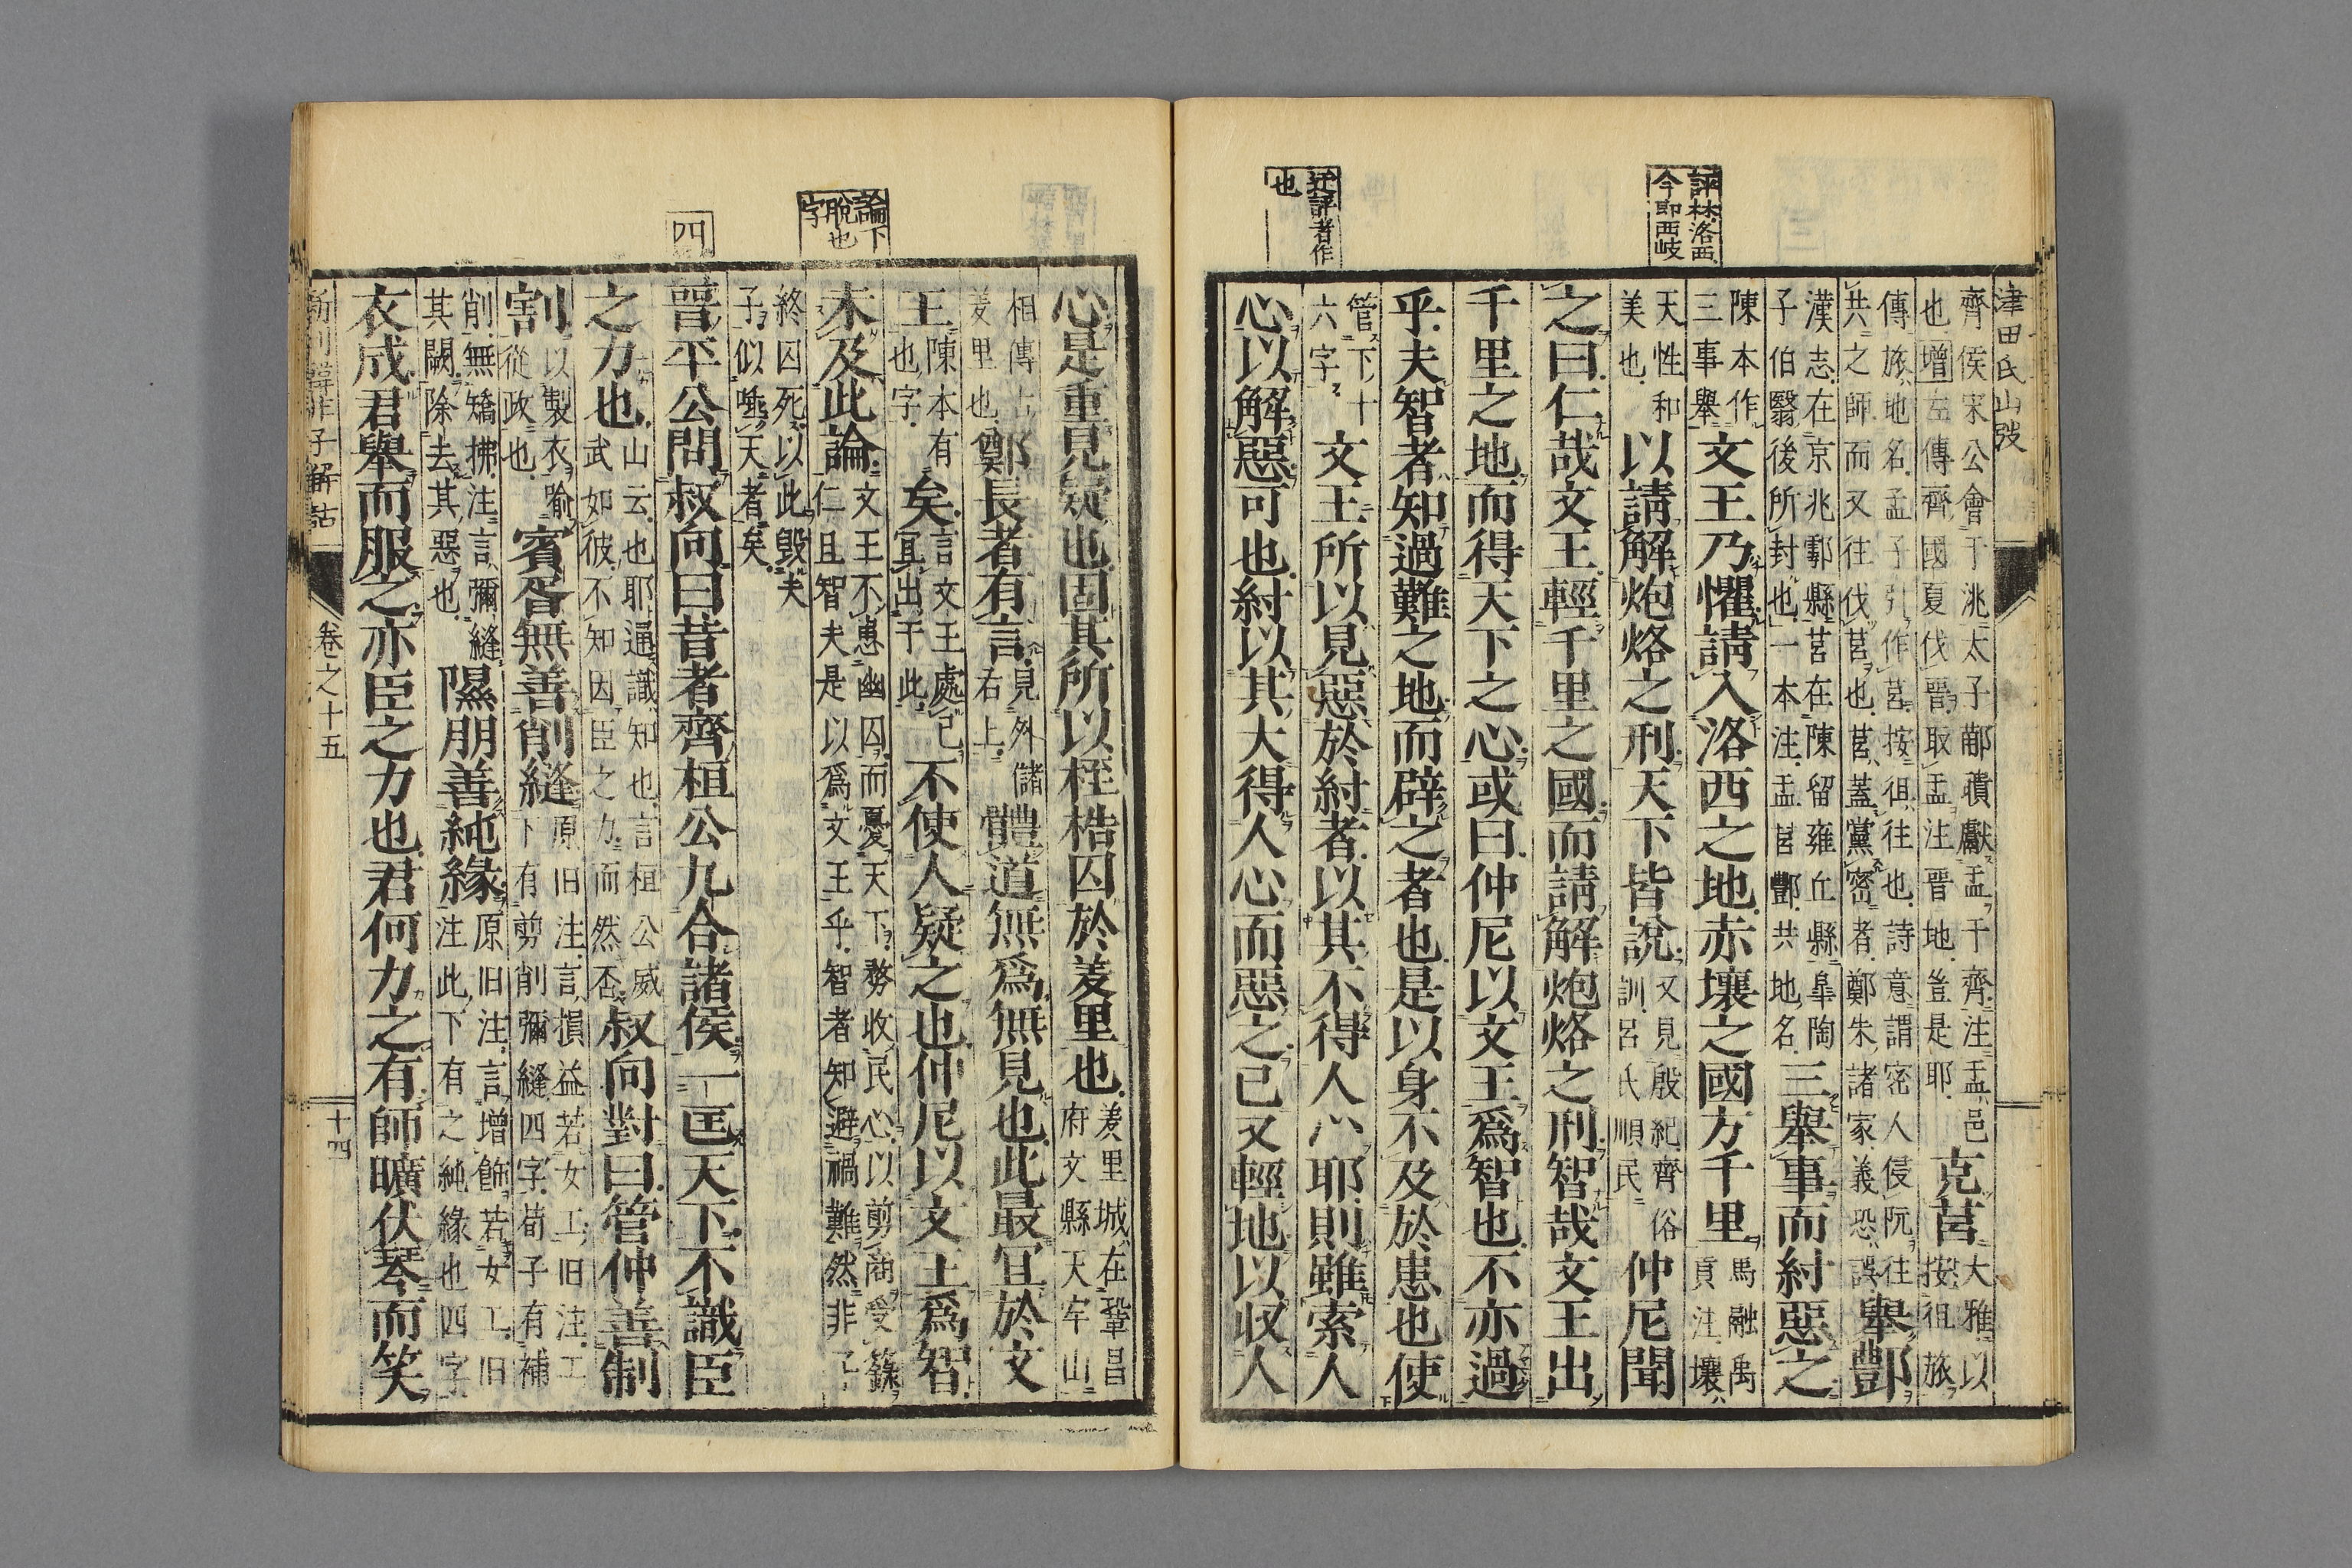 評林洛西
今即西岐
迂評者作
也
津田氏山
齊侯宋公會于洮太子蒯聵獻盂于齊注盂邑
也增左傳齊國夏伐晉取盂注晉地豈是耶
克莒
大雅以
按徂旅
傳旅地名孟子引作莒按徂往也詩意謂密人侵阮往
共之師而又往伐莒也莒蓋黨密者鄭朱諸家義恐誤
舉酆
漢志在京兆鄠縣莒在陳留雍丘縣皋陶
子伯翳後所封也一本注盂莒酆共地名
三舉事而紂惡之
陳本作
三事舉
文王乃懼請入洛西之地赤壤之國方千里
馬融禹
貢注壤
天性和
美也
以請解炮烙之刑天下皆說
又見殷紀齊俗
訓呂氏順民
仲尼聞
之曰仁哉文王輕千里之國而請解炮烙之刑智哉文王出
千里之地而得天下之心或曰仲尼以文王爲智也不亦過
乎夫智者知過難之地而辟之者也是以身不及於患也使
管下十
六字
文王所以見惡於紂者以其不得人心耶則雖索人
心以解惡可也紂以其大得人心而惡之已又輕地以収人
論下
脫也
字
四
心是重見疑也固其所以桎梏囚於羑里也
羑里城在鞏昌
府文縣天牢山
相傳古
羑里也
鄭長者有言
見外儲
右上
體道無爲無見也此最冝於文
王
陳本有
也字
矣
言文王處己
冝出于此
不使人疑之也仲尼以文王爲智
未及此論
文王不患幽囚而憂天下務收民心以剪商受籙
仁且智夫是以爲文王乎智者知避禍難然非
終囚死以此毀夫
子似唾天者矣
晉平公問叔向曰昔者齊桓公九合諸侯一匡天下不識臣
之力也
山云也耶通識知也言桓公威
武如彼不知因臣之力而然否
叔向對曰管仲善制
割
以製衣喻
從政也
賓胥無善削縫
原旧注言損益若女工旧注工
下有剪削彌縫四字荀子有補
削無矯拂注言彌縫
其闕除去其惡也
隰朋善純緣
原旧注言增飾若女工旧
注此下有之純緣也四字
衣成君舉而服之亦臣之力也君何力之有師曠伏琴而笑
韓非子解詁
卷之十五
十四